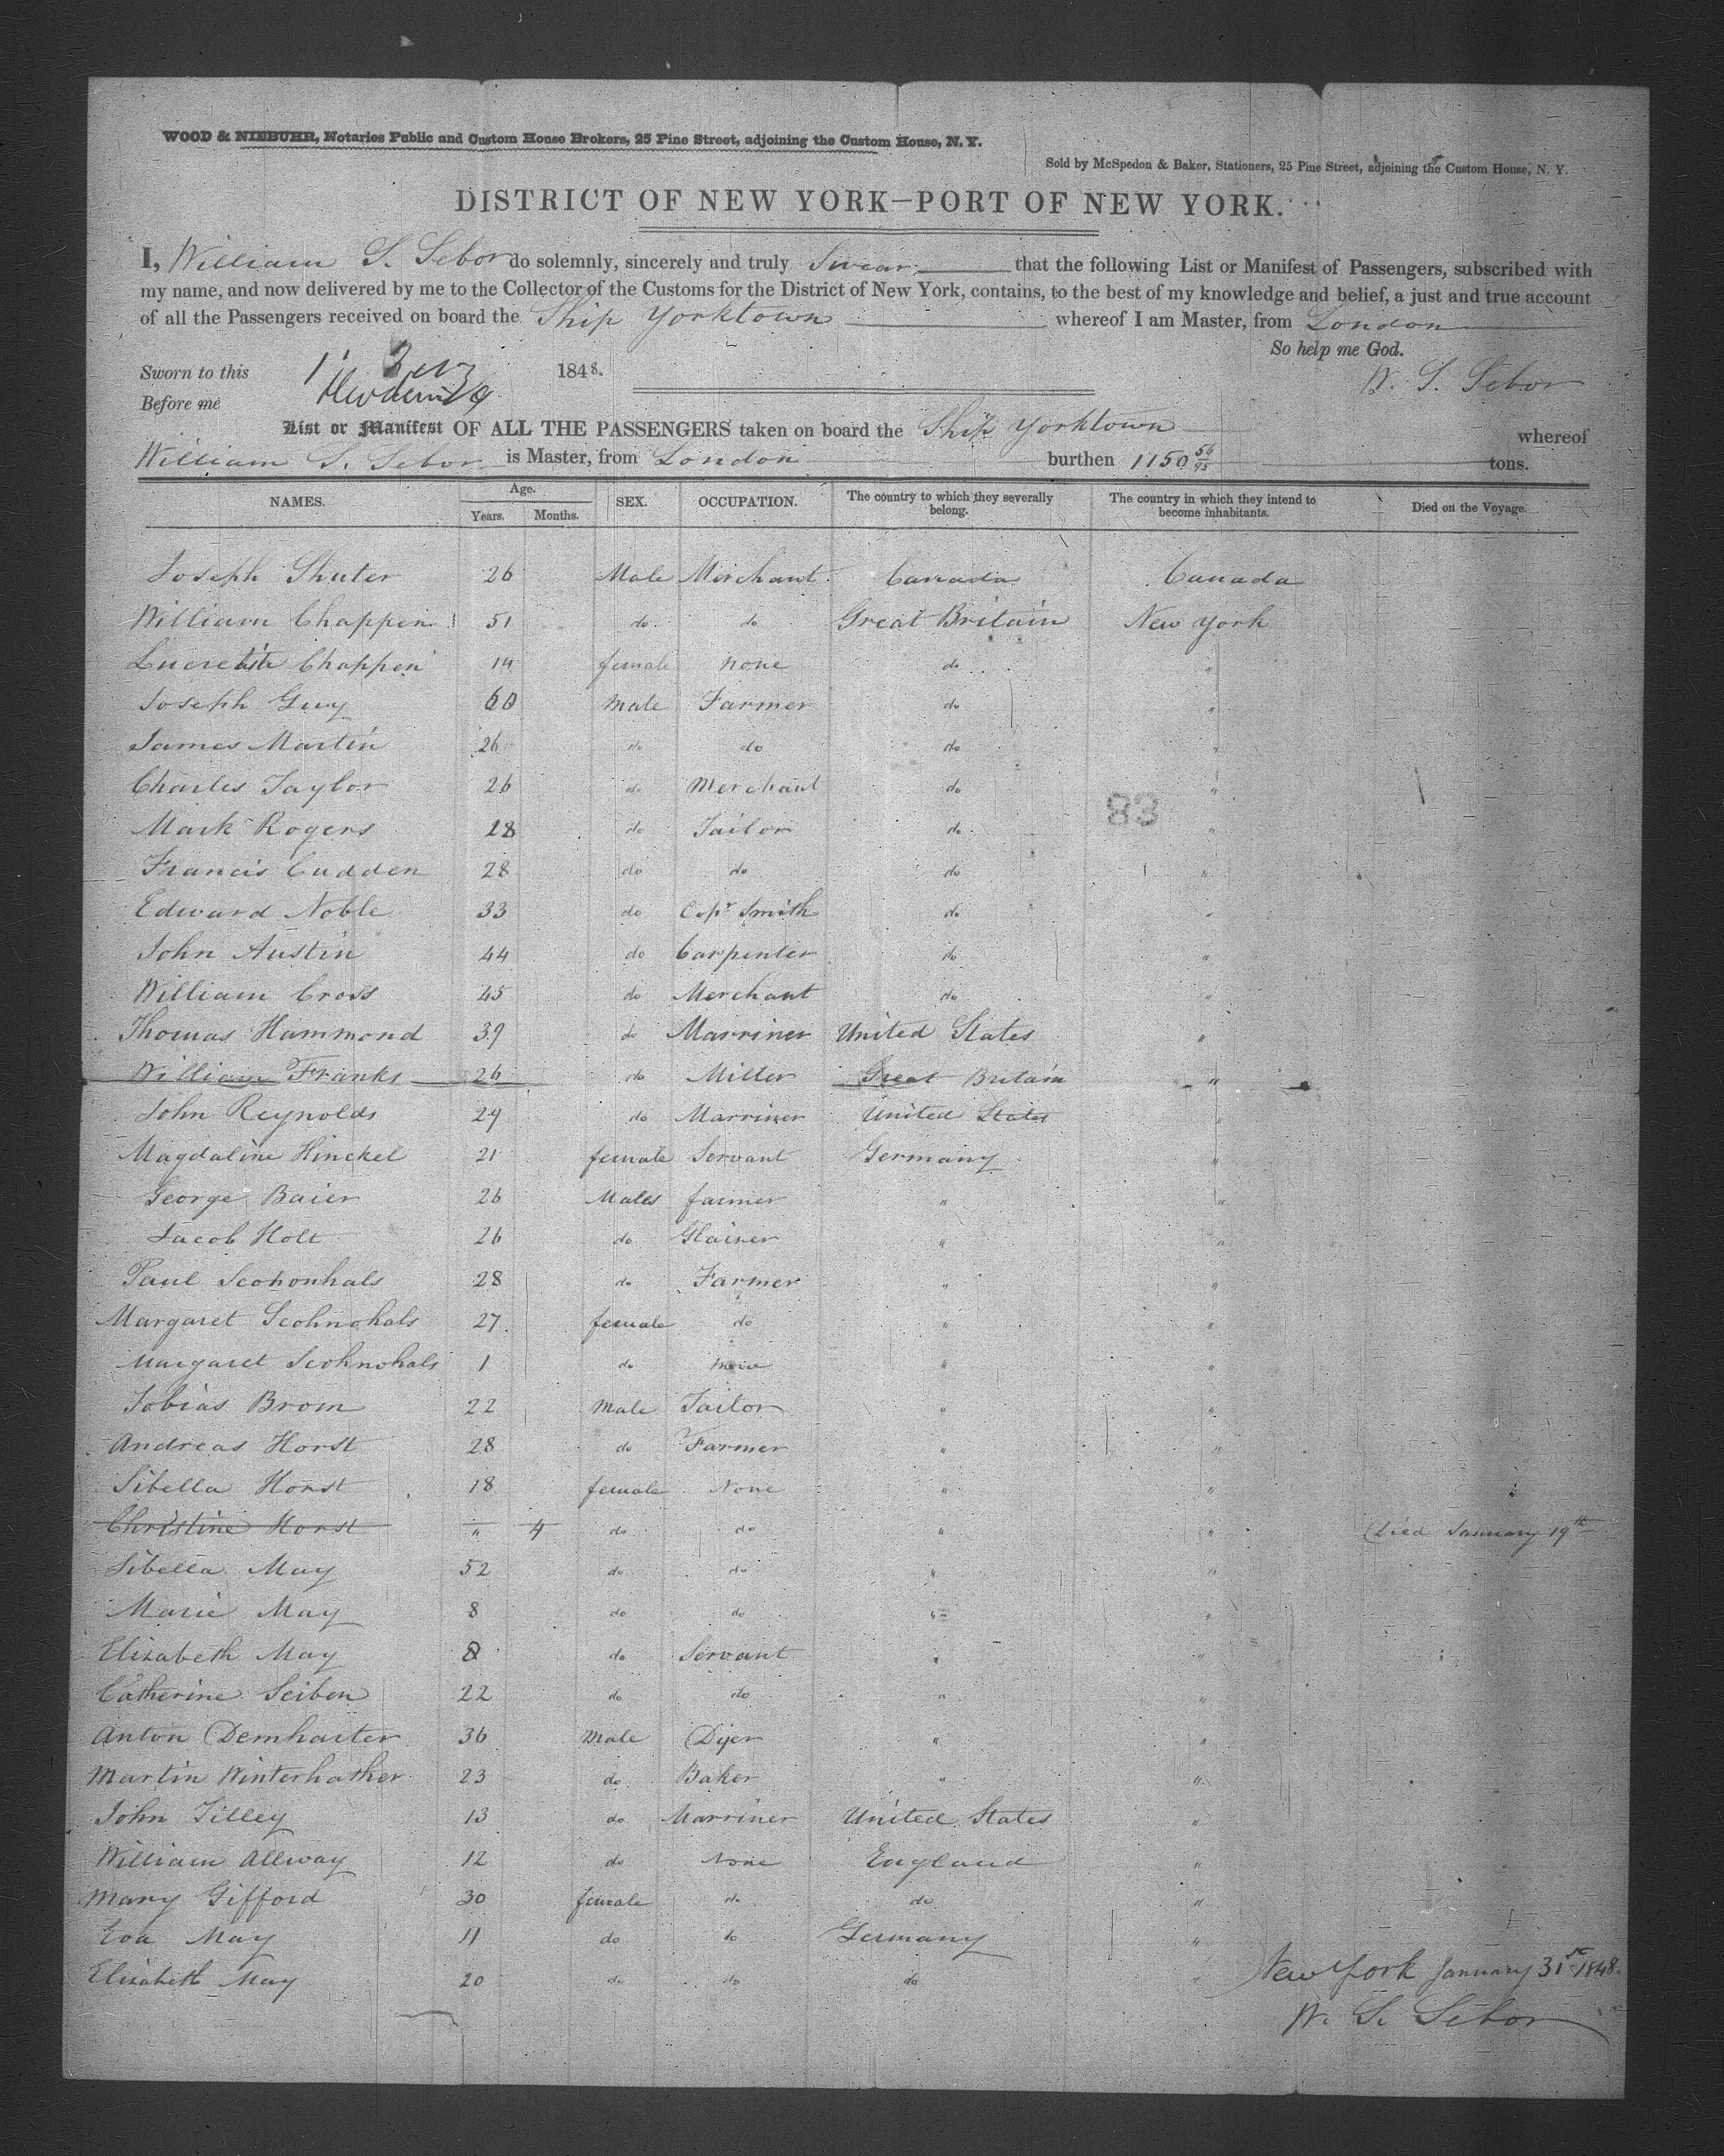 WOOD & NIEBUHR, Notaries Public and Custom House Brokers, 25 Pine Street, adjoining the Custom House, N. Y.
Sold by McSpedon & Baker, Stationers, 25 Pine Street, adjoining the Custom House, N. Y.
DISTRICT OF NEW YORK—PORT OF NEW YORK.
I, William S. Sebor do solemnly, sincerely and truly Swear that the following List or Manifest of Passengers, subscribed with
my name, and now delivered by me to the Collector of the Customs for the District of New York, contains, to the best of my knowledge and belief, a just and true account
of all the Passengers received on board the Ship Yorktown whereof I am Master, from London
So help me God.
Sworn to this 1 1848.
W. S. Sebor
Before me
List or Manifest OF ALL THE PASSENGERS taken on board the Ship Yorktown whereof
William S. Sebor is Master, from London burthen 1150 54/95 tons.
NAMES. Age. Years. Months. SEX. OCCUPATION. The country to which they severally belong. The country in which they intend to become inhabitants. Died on the Voyage.
Joseph Shuter 26 Male Merchant Canada Canada
William Chappen 51 do do Great Britain New York
Lucretia Chappen 14 female none do "
Joseph Guy 60 Male Farmer do "
James Martin 26 do do do "
Charles Taylor 26 do Merchant do "
83
Mark Rogers 28 do Tailor do "
Francis Cudden 28 do do do "
Edward Noble 33 do Copr Smith do "
John Austin 44 do Carpenter do "
William Cross 45 do Merchant do "
Thomas Hammond 39 do Marriner United States "
William Franks 26 do Miller Great Britain "
John Reynolds 29 do Marriner United States "
Magdaline Hinckel 21 female Servant Germany "
George Baier 26 Males farmer " "
Jacob Holt 26 do Glaiser " "
Paul Scohonhals 28 do Farmer " "
Margaret Scohnohals 27 female do " "
Margaret Scohnohals 1 do " "
Tobias Brom 22 Male Tailor " "
Andreas Horst 28 do Farmer " "
Sibella Horst 18 female None " "
Christine Horst " 4 do do " " Died January 19th
Sibella May 52 do do " "
Marie May 8 do do " "
Elizabeth May 8 do Servant " "
Catherine Seiben 22 do do " "
Anton Demharter 36 Male Dyer " "
Martin Winterhather 23 do Baker " "
John Tilley 13 do Marriner United States "
William Allway 12 do None England "
Mary Gifford 30 female do do "
Eva May 11 do do Germany "
Elizabeth May 20 do do do "
New York January 31st 1848.
W. S. Sebor